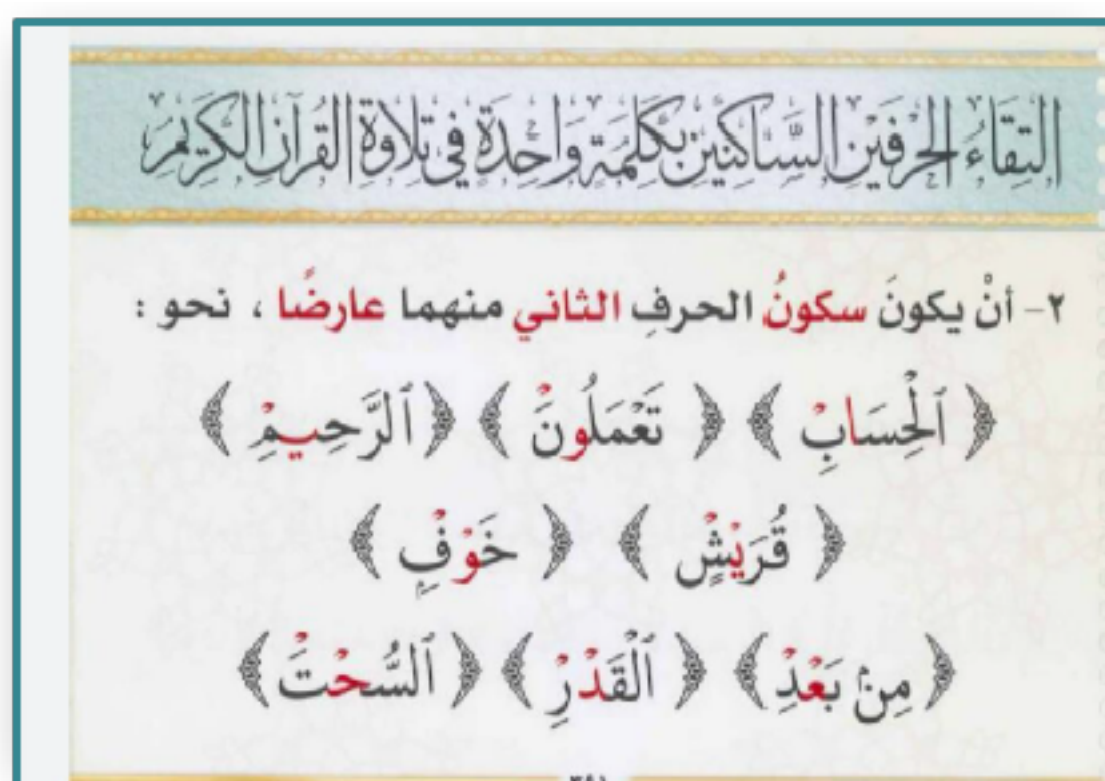 التِقَاءُ الحَرْفَيْنِ السَّاكِنَيْنِ بِكَلِمَةٍ وَاحِدَةٍ فِي تِلَاوَةِ القُرْآنِ الكَرِيْمِ
٢- أنْ يكونَ سكونُ الحرفِ الثاني منهما عارضًا ، نحو :
﴿ ٱلْحِسَابِْ ﴾ ﴿ تَعْمَلُونَْ ﴾ ﴿ ٱلرَّحِيمِْ ﴾
﴿ قُرَيْشٍْ ﴾ ﴿ خَوْفٍْ ﴾
﴿ مِنۢ بَعْدِْ ﴾ ﴿ ٱلْقَدْرِْ ﴾ ﴿ ٱلسُّحْتَْ ﴾